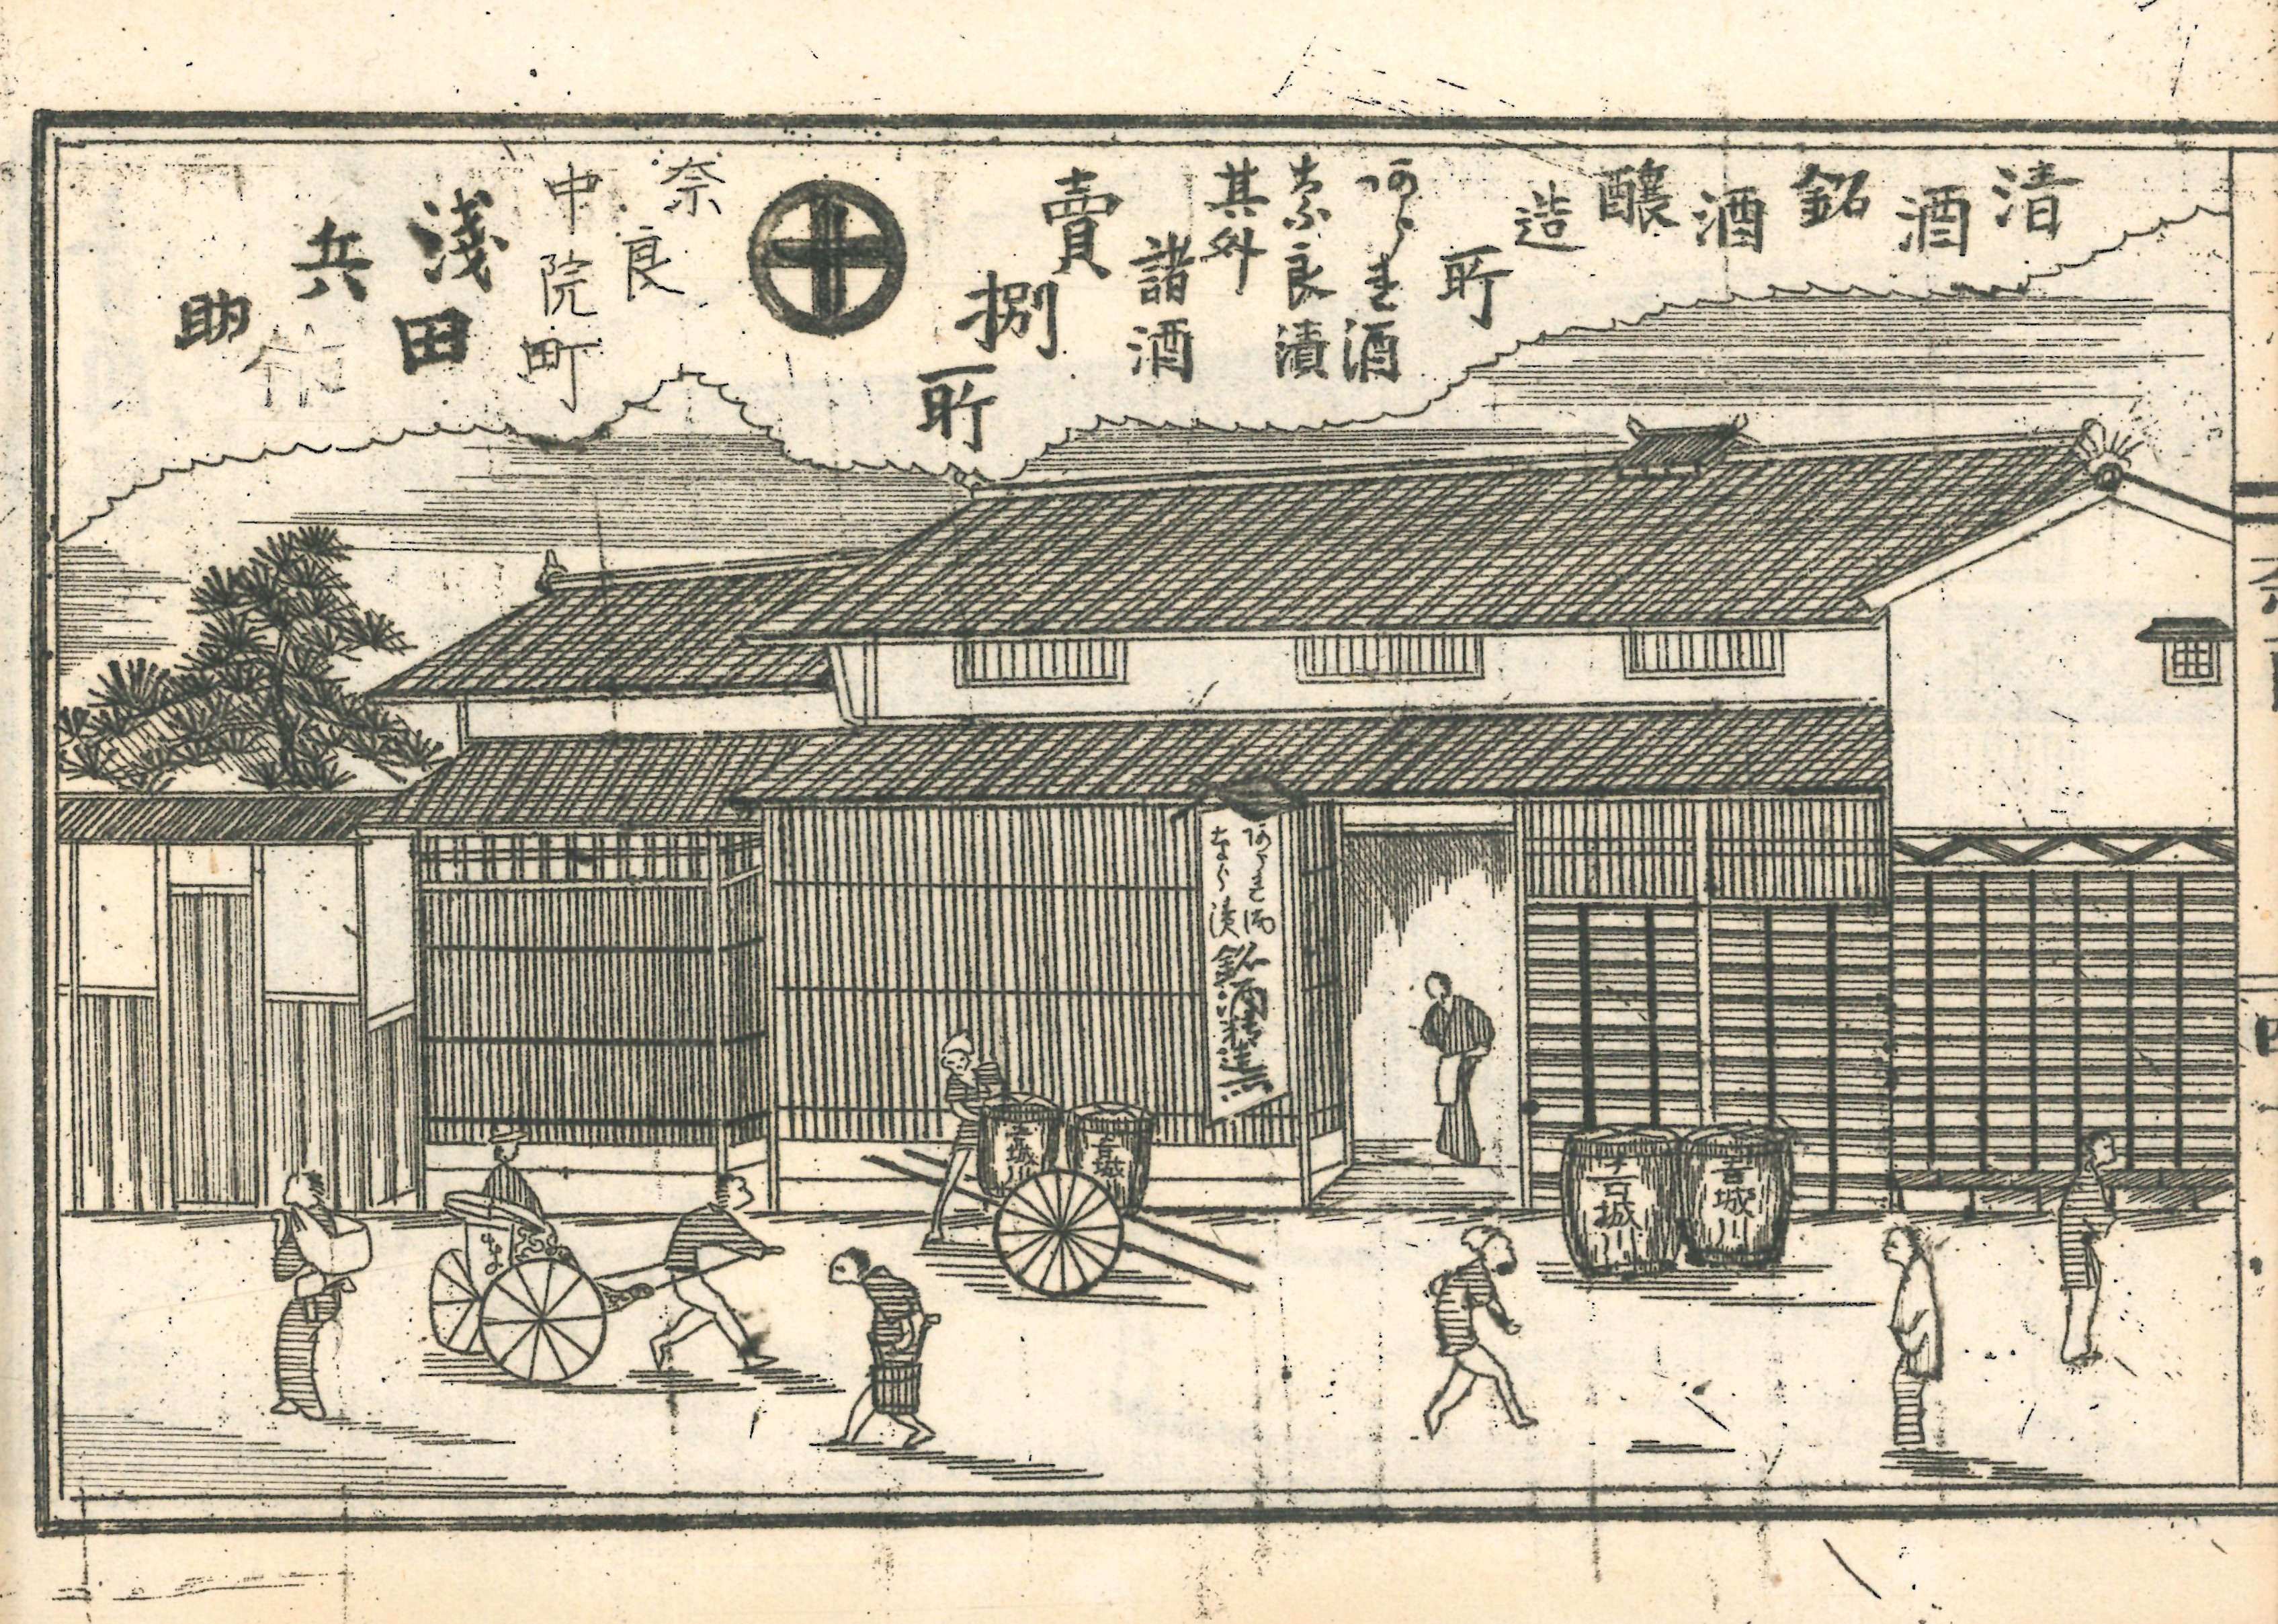 清酒銘酒醸造所
阿られ酒
奈良漬
其外
諸酒
賣捌所
奈良
中院町
淺田
兵助
阿られ酒
なら漬
銘酒
吉城川
吉城川
吉城川
吉城川